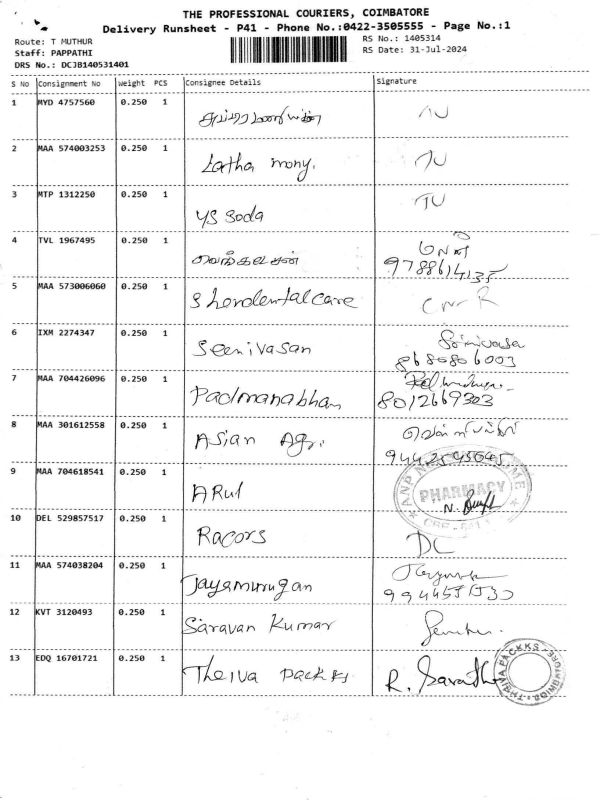 THE PROFESSIONAL COURIERS, COIMBATORE
Delivery Runsheet - P41 - Phone No.:0422-3505555 - Page No.:1
Route: T MUTHUR
RS No.: 1405314
Staff: PAPPATHI
RS Date: 31-Jul-2024
DRS No.: DCJB140531401
S No Consignment No Weight PCS Consignee Details Signature
1 MYD 4757560 0.250 1
2 MAA 574003253 0.250 1 Latha mony.
3 MTP 1312250 0.250 1 YS Soda
4 TVL 1967495 0.250 1
9788614135
5 MAA 573006060 0.250 1 Shendentalcare
6 IXM 2274347 0.250 1 Seenivasan
8680806003
7 MAA 704426096 0.250 1 Padmanabhan
8012669303
8 MAA 301612558 0.250 1 Asian Agr.
9442545645
9 MAA 704618541 0.250 1 ARul
PHARMACY
10 DEL 529857517 0.250 1 Racors DC
11 MAA 574038204 0.250 1 Jayamurugan
12 KVT 3120493 0.250 1 Saravan Kumar
13 EDQ 16701721 0.250 1 Theiva packks R.